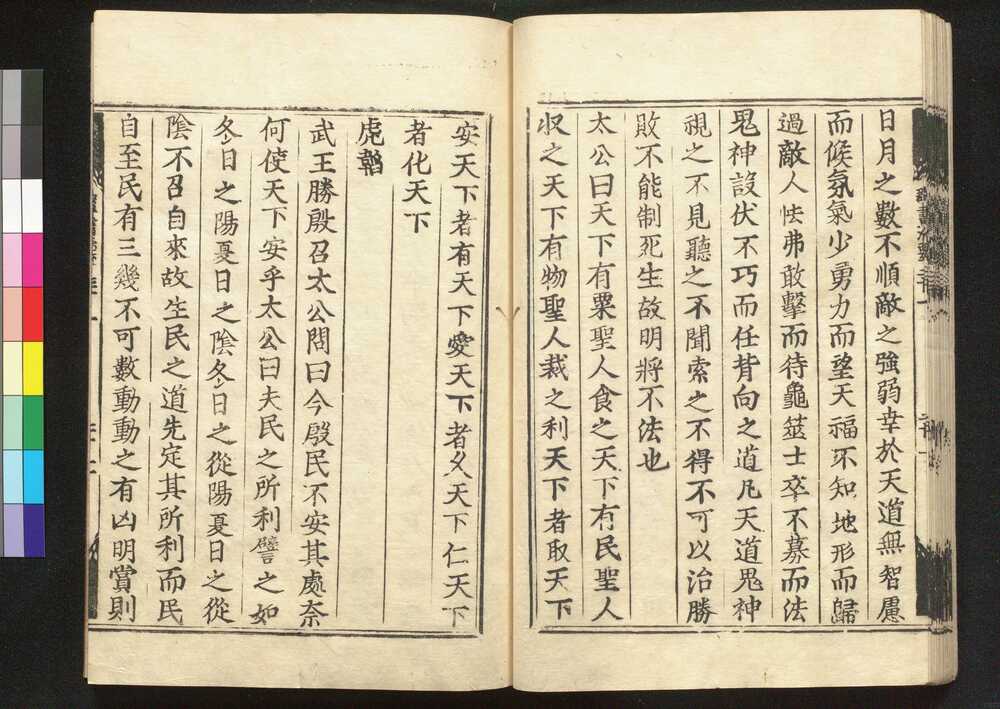 日月之數不順敵之強弱幸於天道無智慮
而候氛氣少勇力而望天福不知地形而歸
過敵人怯弗敢擊而待龜筮士卒不募而法
鬼神設伏不巧而任背向之道凡天道鬼神
視之不見聽之不聞索之不得不可以治勝
敗不能制死生故明將不法也
太公曰天下有粟聖人食之天下有民聖人
収之天下有物聖人裁之利天下者取天下
安天下者有天下愛天下者久天下仁天下
者化天下
虎韜
武王勝殷召太公問曰今殷民不安其處奈
何使天下安乎太公曰夫民之所利譬之如
冬日之陽夏日之陰冬日之從陽夏日之從
陰不召自來故生民之道先定其所利而民
自至民有三幾不可數動動之有凶明賞則